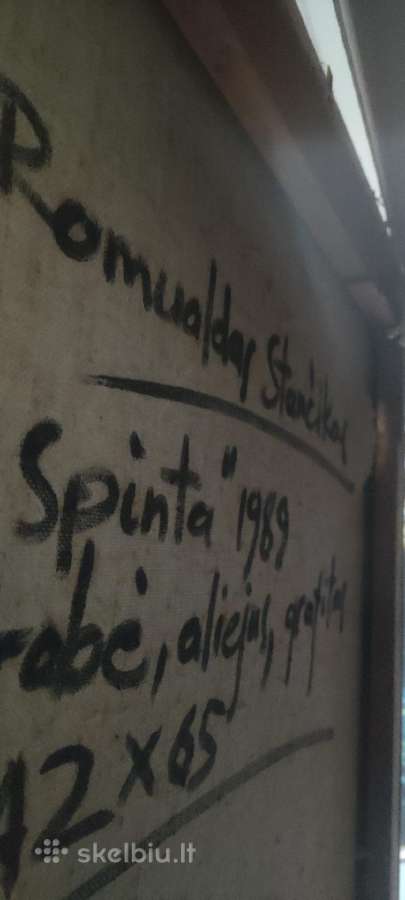 Romualdas Stančikas
Spinta" 1989
robė, aliejus, grafitas
42x65
skelbiu.lt